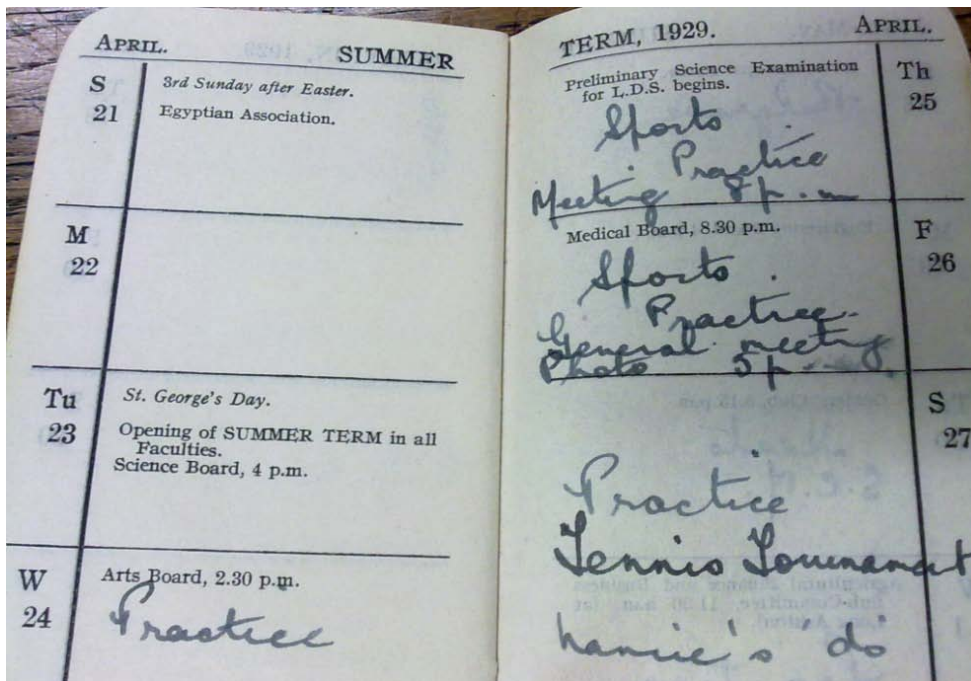 APRIL. SUMMER
S
21
3rd Sunday after Easter.
Egyptian Association.
M
22
Tu
23
St. George's Day.
Opening of SUMMER TERM in all
Faculties.
Science Board, 4 p.m.
W
24
Arts Board, 2.30 p.m.
Practice
TERM, 1929. APRIL.
Th
25
Preliminary Science Examination
for L.D.S. begins.
Sports
Practice
Meeting 8 p.m
F
26
Medical Board, 8.30 p.m.
Sports.
Practice.
General meeting
Photo 5 p.m.
S
27
Practice
Tennis Tournament
'do